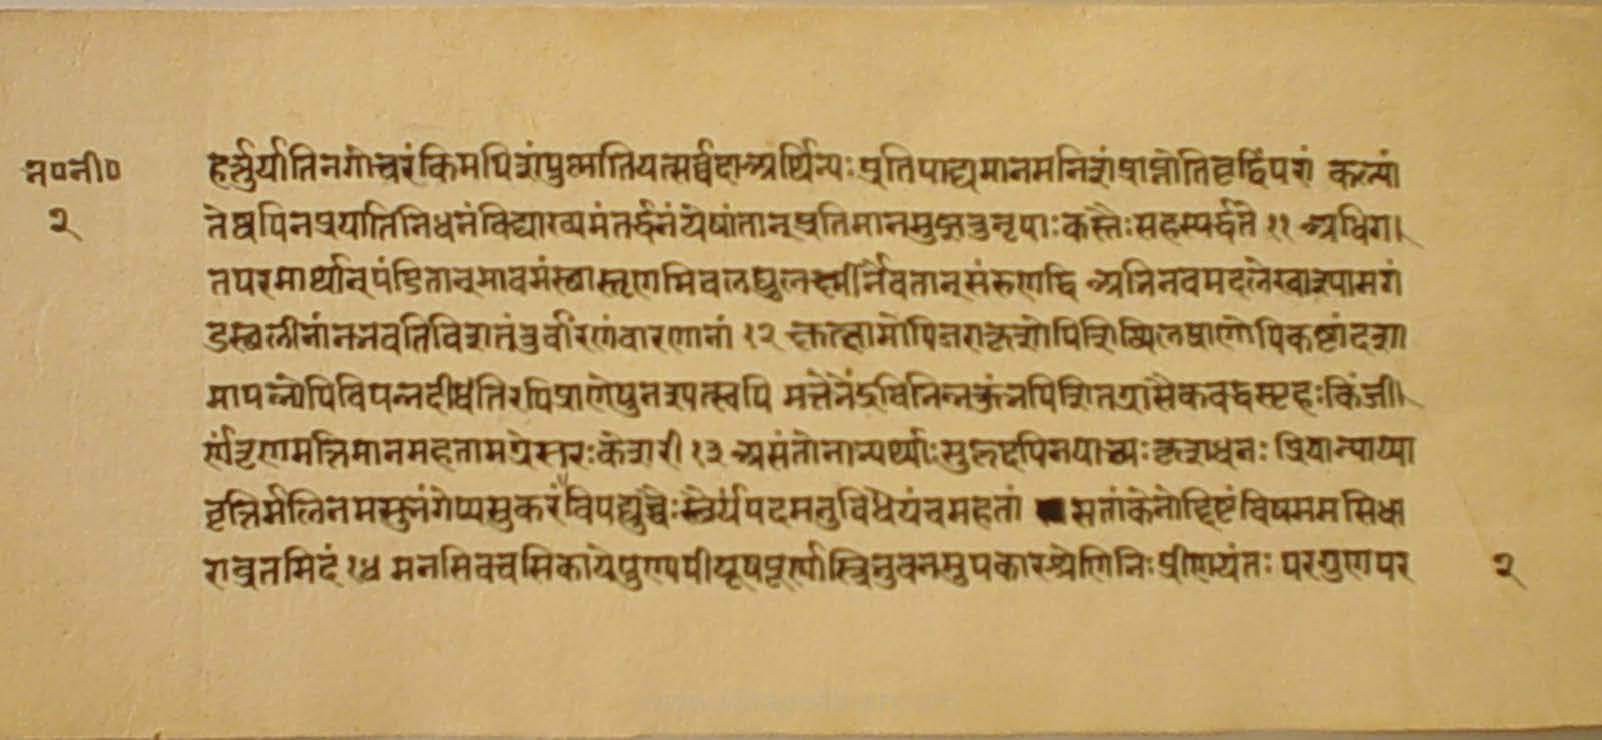 भ०नी०
२
हर्त्तुर्यातिनगोचरंकिमपिशंपुष्णातियत्सर्वदाअर्थिभ्यःप्रतिपाद्यमानमनिशंप्राप्नोतिवृद्धिंपरां कल्पां
तेष्वपिनप्रयातिनिधनंविद्याख्यमंतर्द्धनंयेषांतान्प्रतिमानमुझतनृपाःकस्तैःसहस्पर्द्धते ११ अधिग
तपरमार्थान्पंडितान्मावमंस्थास्तृणमिवलघुलक्ष्मीर्नैवतान्संरुणद्धि अभिनवमदलेखाश्यामगं
डस्थलीनांनभवतिविशतंतुर्वारणंवारणानां १२ क्षुत्क्षामोपिजराकृशोपिशिथिलप्राणोपिकष्टांदशा
मापन्नोपिविपन्नदीधितिरपिप्राणेषुनश्यत्स्वपि मत्तेभेंद्रविभिन्नकुंभपिशितग्रासैकबद्धस्पृहःकिंजी
र्णंतृणमत्तिमानमहतामग्रेसरःकेशरी १३ असंतोनाभ्यर्थ्याःसुहृदपिनयाच्यःकृशधनः प्रियान्याय्या
वृत्तिर्मलिनमसुभंगेप्यसुकरंविपद्युच्चैःस्थैर्यंपदमनुविधेयंचमहतां सतांकेनोद्दिष्टंविषममसिधा
राव्रतमिदं १४ मनसिवचसिकायेपुण्यपीयूषपूर्णास्त्रिभुवनमुपकारश्रेणिभिःप्रीणयंतः परगुणपर
२